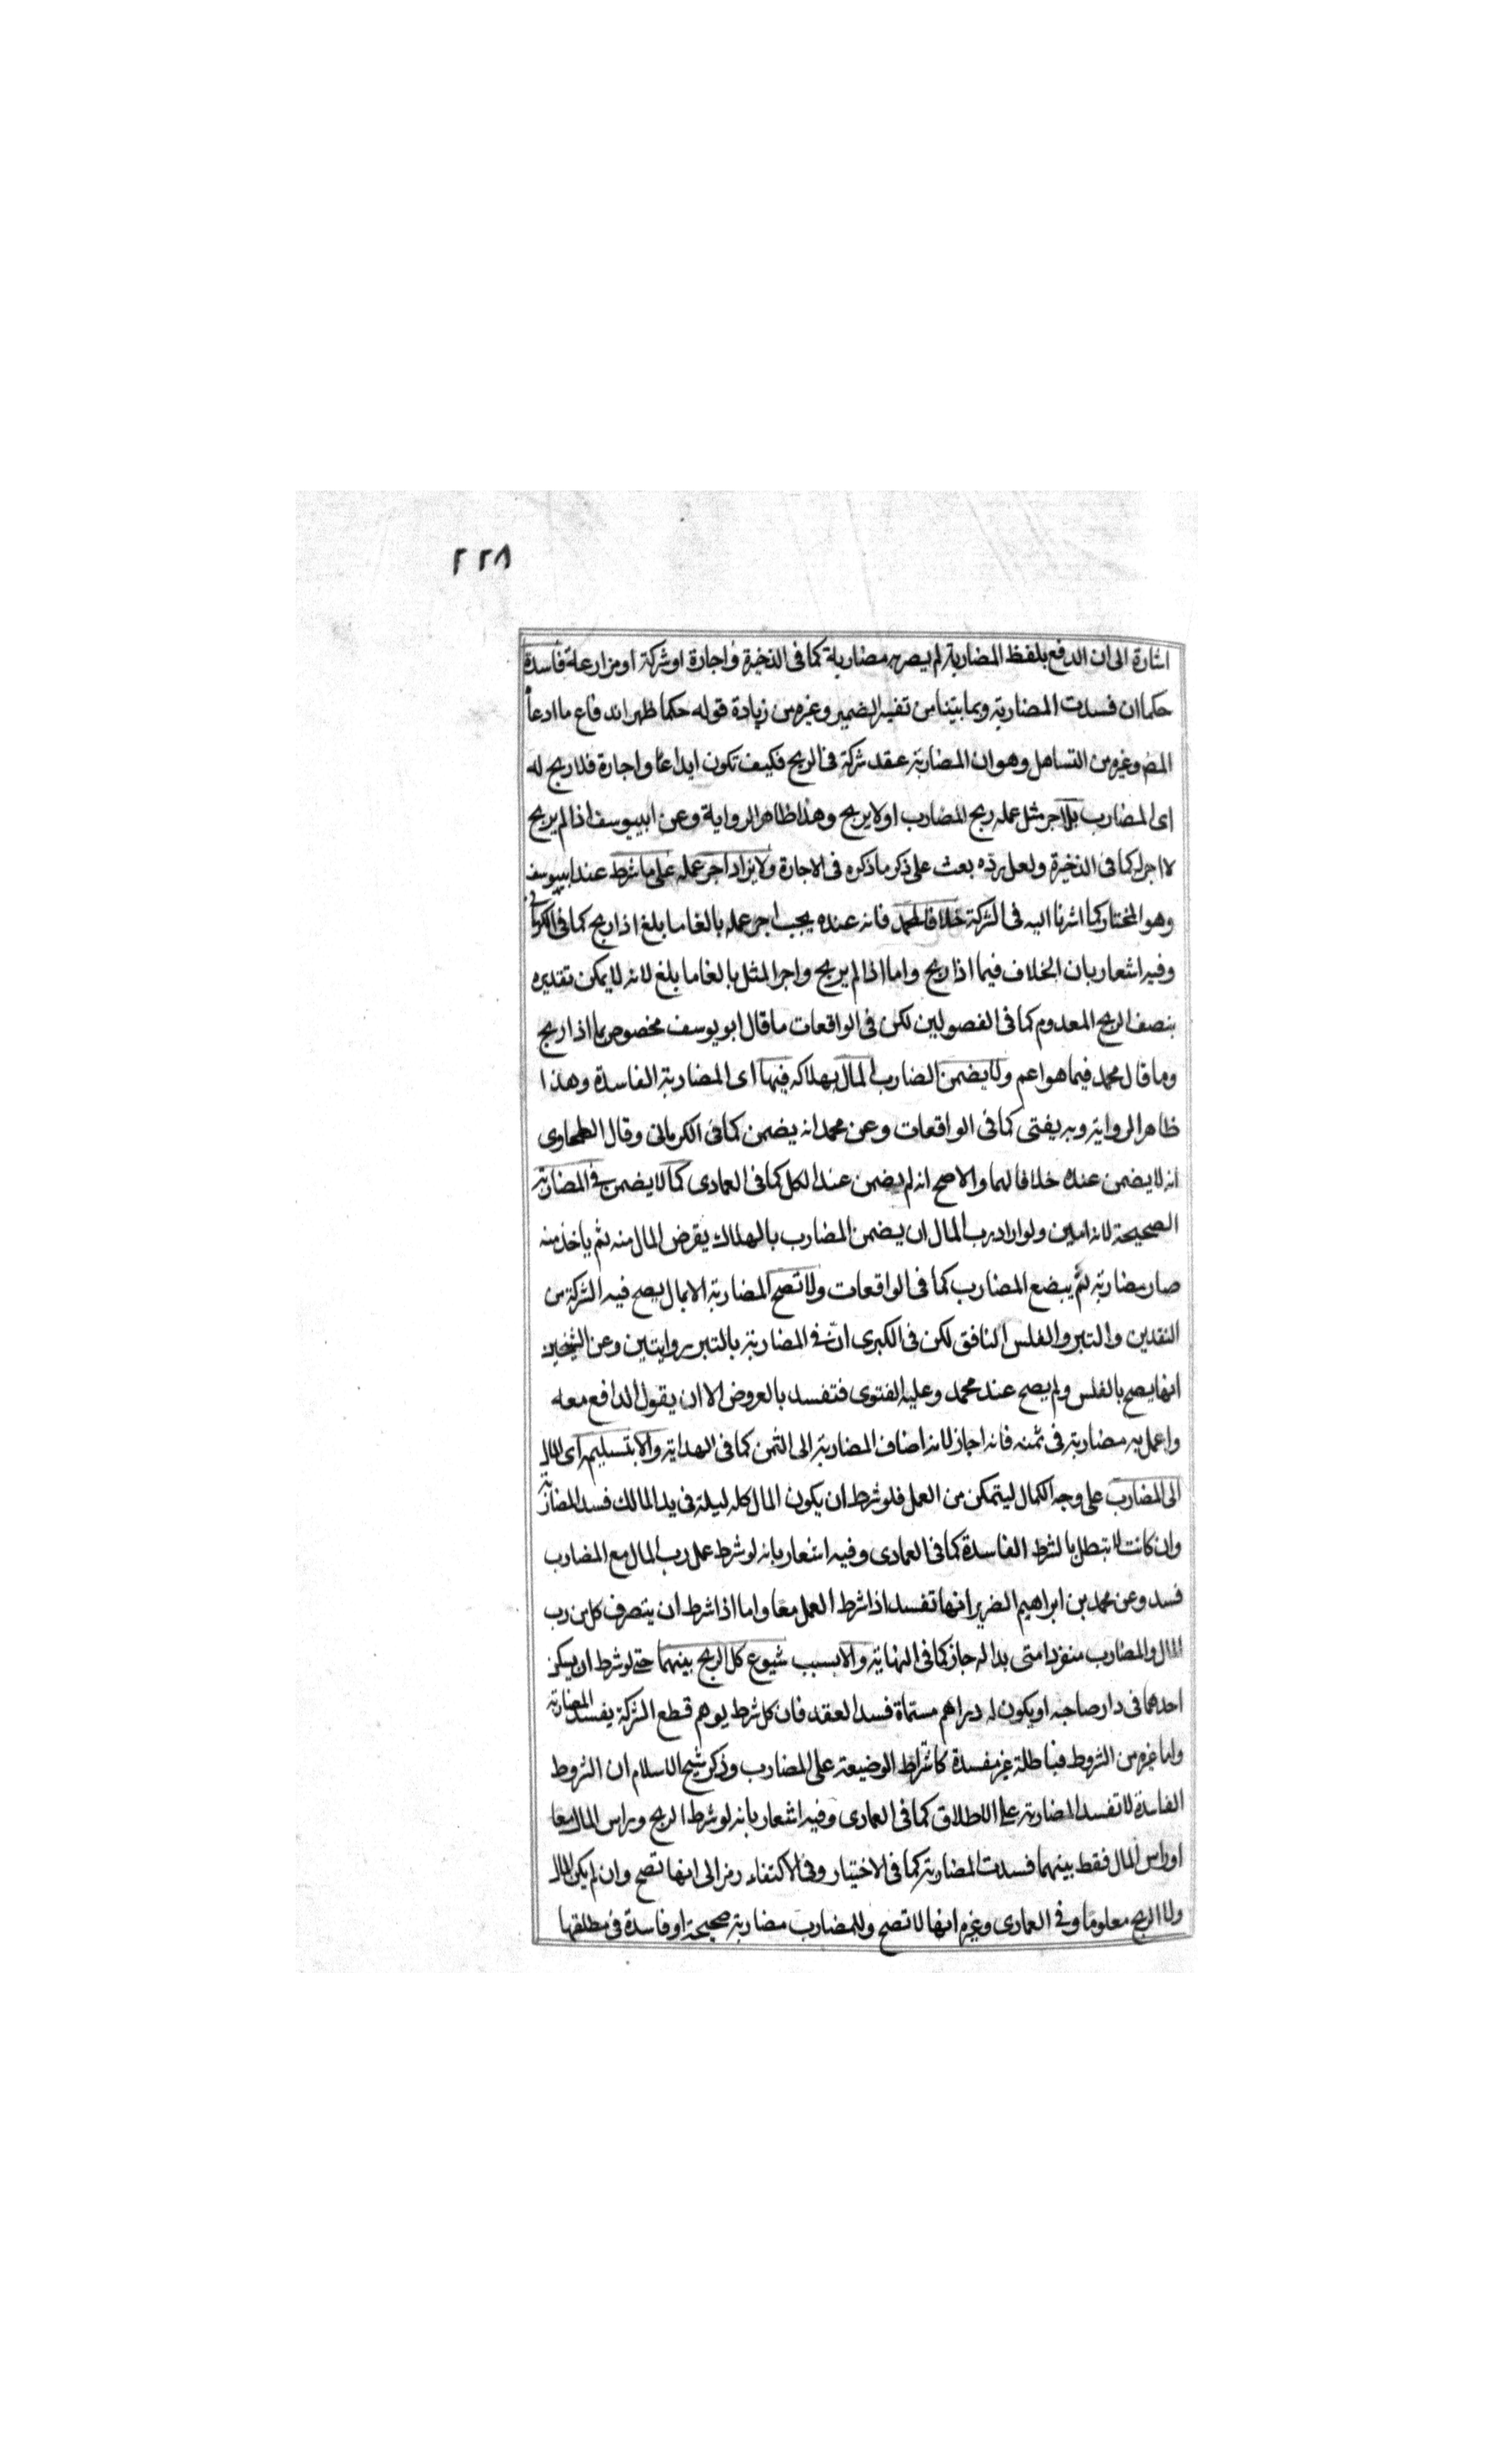 ٢٢٨
اشارة الى ان الدفع بلفظ المضاربة لم يصر مضاربة كما فى الذخيرة واجارة او شركة او مزارعة فاسدة
حكما ان فسدت المضاربة وبما بينا من تفسير الضمير وغيره من زيادة قوله حكما ظهر اندفاع ما ادعاه
المص وغيره من التساهل وهو ان المضاربة عقد شركة فى الربح فكيف تكون ايداعا واجارة فلا ربح له
اى المضارب بل اجر مثل عمله ربح المضارب اولا يربح وهذا ظاهر الرواية وعن ابيوسف اذا لم يربح
لا اجر له كما فى الذخيرة ولعل رده بعث على ذكر ما ذكره فى الاجارة ولا يزاد اجر عمله على ما شرط عند ابيوسف
وهو المختار كما اشرنا اليه فى الشركة خلافا لمحمد فانه عنده يجب اجر عمله بالغا ما بلغ اذا ربح كما فى الكرمانى
وفيه اشعار بان الخلاف فيما اذا ربح واما اذا لم يربح واجر المثل بالغا ما بلغ لانه لا يمكن تقديره
بنصف الربح المعدوم كما فى الفصولين لكن فى الواقعات ما قال ابو يوسف مخصوص بما اذا ربح
وما قال محمد فيما هو اعم ولا يضمن المضارب المال بهلاكه فيها اى المضاربة الفاسدة وهذا
ظاهر الرواية وبه يفتى كما فى الواقعات وعن محمد انه يضمن كما فى الكرمانى وقال الطحاوى
انه لا يضمن عنده خلافا لهما والاصح انه لم يضمن عند الكل كما فى العمادى كما لا يضمن فى المضاربة
الصحيحة لانه امين ولو اراد رب المال ان يضمن المضارب بالهلاك يقرض المال منه ثم ياخذ منه
صار مضاربة ثم يبضع المضارب كما فى الواقعات ولا تصح المضاربة الا بمال يصح فيه الشركة من
النقدين والتبر والفلس النافق لكن فى الكبرى ان فى المضاربة بالتبر روايتين وعن الشيخين
انها يصح بالفلس ولم يصح عند محمد وعليه الفتوى فتفسد بالعروض الا ان يقول الدافع معه
واعمل به مضاربة فى ثمنه فانه اجاز لانه اضاف المضاربة الى الثمن كما فى الهداية والا بتسليمه اى المال
الى المضارب على وجه الكمال ليتمكن من العمل فلو شرط ان يكون المال كله ليلة فى يد المالك فسد المضاربة
وان كانت لا تبطل بالشرط الفاسدة كما فى العمادى وفيه اشعار بانه لو شرط عمل رب المال مع المضارب
فسد وعن محمد بن ابراهيم الضرير انها تفسد اذا شرط العمل معا واما اذا شرط ان يتصرف كل من رب
المال والمضارب منفردا متى بدا له جاز كما فى النهاية والا بسبب شيوع كل الربح بينهما حتى لو شرط ان يسكن
احدهما فى دار صاحبه او يكون له دراهم مسماة فسد العقد فان كل شرط يوهم قطع الشركة يفسد المضاربة
واما غيره من الشروط فباطلة غير مفسدة كاشتراط الوضيعة على المضارب وذكر شيخ الاسلام ان الشروط
الفاسدة لا تفسد المضاربة على الاطلاق كما فى العمادى وفيه اشعار بانه لو شرط الربح وراس المال معا
او راس المال فقط بينهما فسدت المضاربة كما فى الاختيار وفى الاكتفاء رمز الى انها تصح وان لم يكن المال
ولا الربح معلوما وفى العمادى وغيره انها لا تصح وللمضارب مضاربة صحيحة او فاسدة فى مطلقها